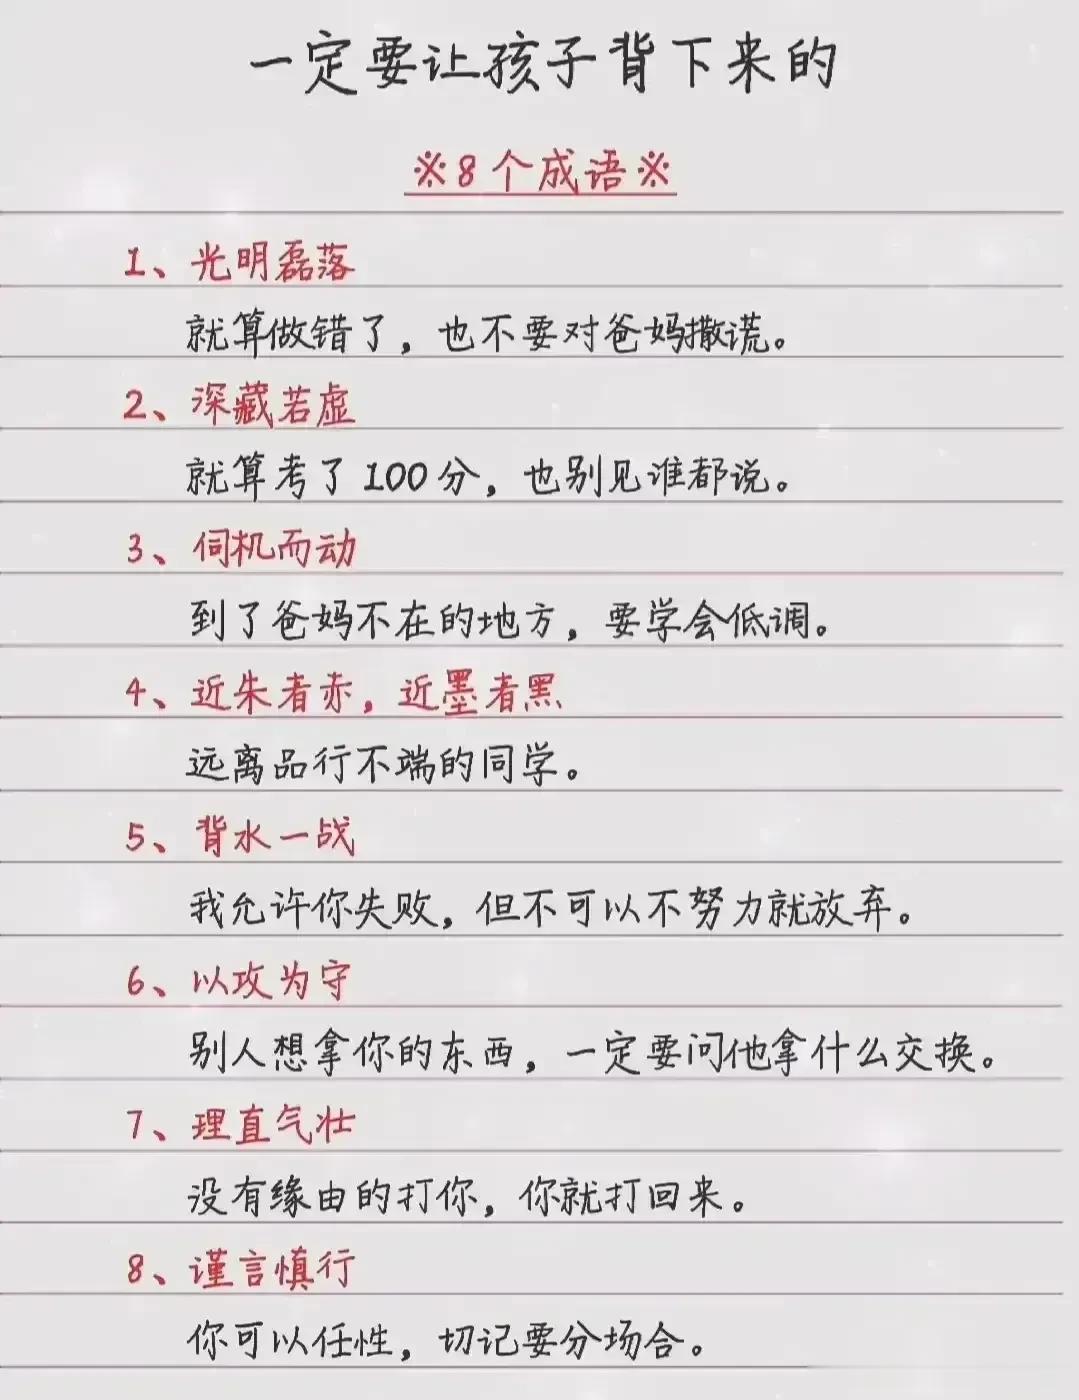 一定要让孩子背下来的
※8个成语※
1、光明磊落
就算做错了，也不要对爸妈撒谎。
2、深藏若虚
就算考了100分，也别见谁都说。
3、伺机而动
到了爸妈不在的地方，要学会低调。
4、近朱者赤，近墨者黑
远离品行不端的同学。
5、背水一战
我允许你失败，但不可以不努力就放弃。
6、以攻为守
别人想拿你的东西，一定要问他拿什么交换。
7、理直气壮
没有缘由的打你，你就打回来。
8、谨言慎行
你可以任性，切记要分场合。